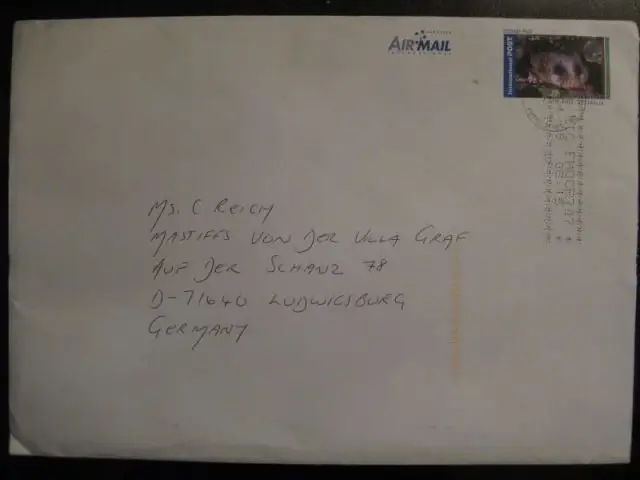 AIR MAIL
International POST
AUSTRALIA
Ms. C REICH
MASTIFFS VON DER VILLA GRAF
AUF DER SCHANZ 78
D-71640 LUDWIGSBURG
GERMANY